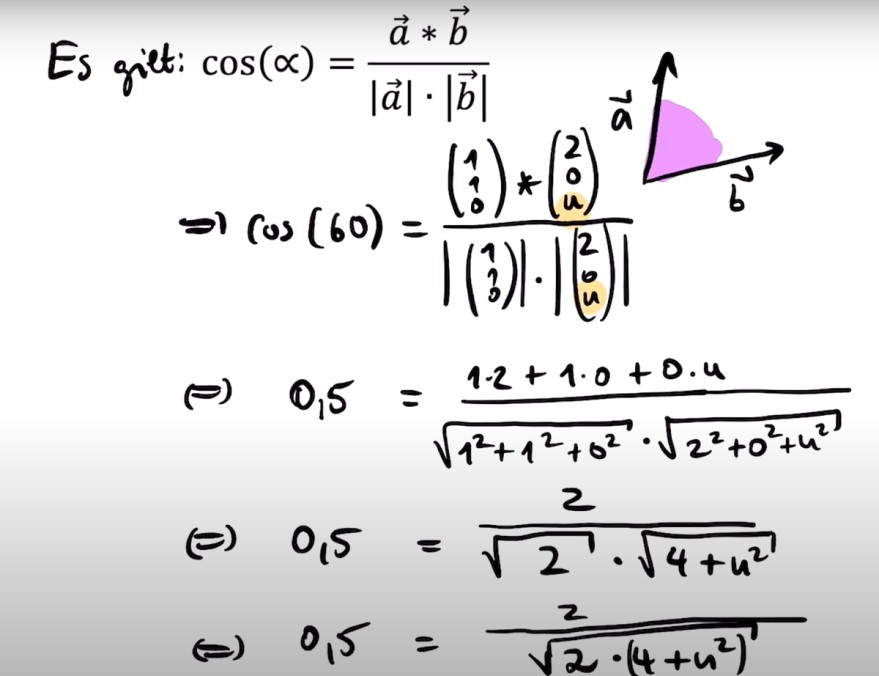 Es gilt: cos(∝) = (a⃗ * b⃗) / (|a⃗| · |b⃗|)
a⃗
b⃗
⇒ cos (60) = ((1 1 0) * (2 0 u)) / (|(1 1 0)| · |(2 0 u)|)
⇔ 0,5 = (1·2 + 1·0 + 0·u) / (√(1²+1²+0²) · √(2²+0²+u²))
⇔ 0,5 = 2 / (√2 · √(4+u²))
⇔ 0,5 = 2 / √(2·(4+u²))